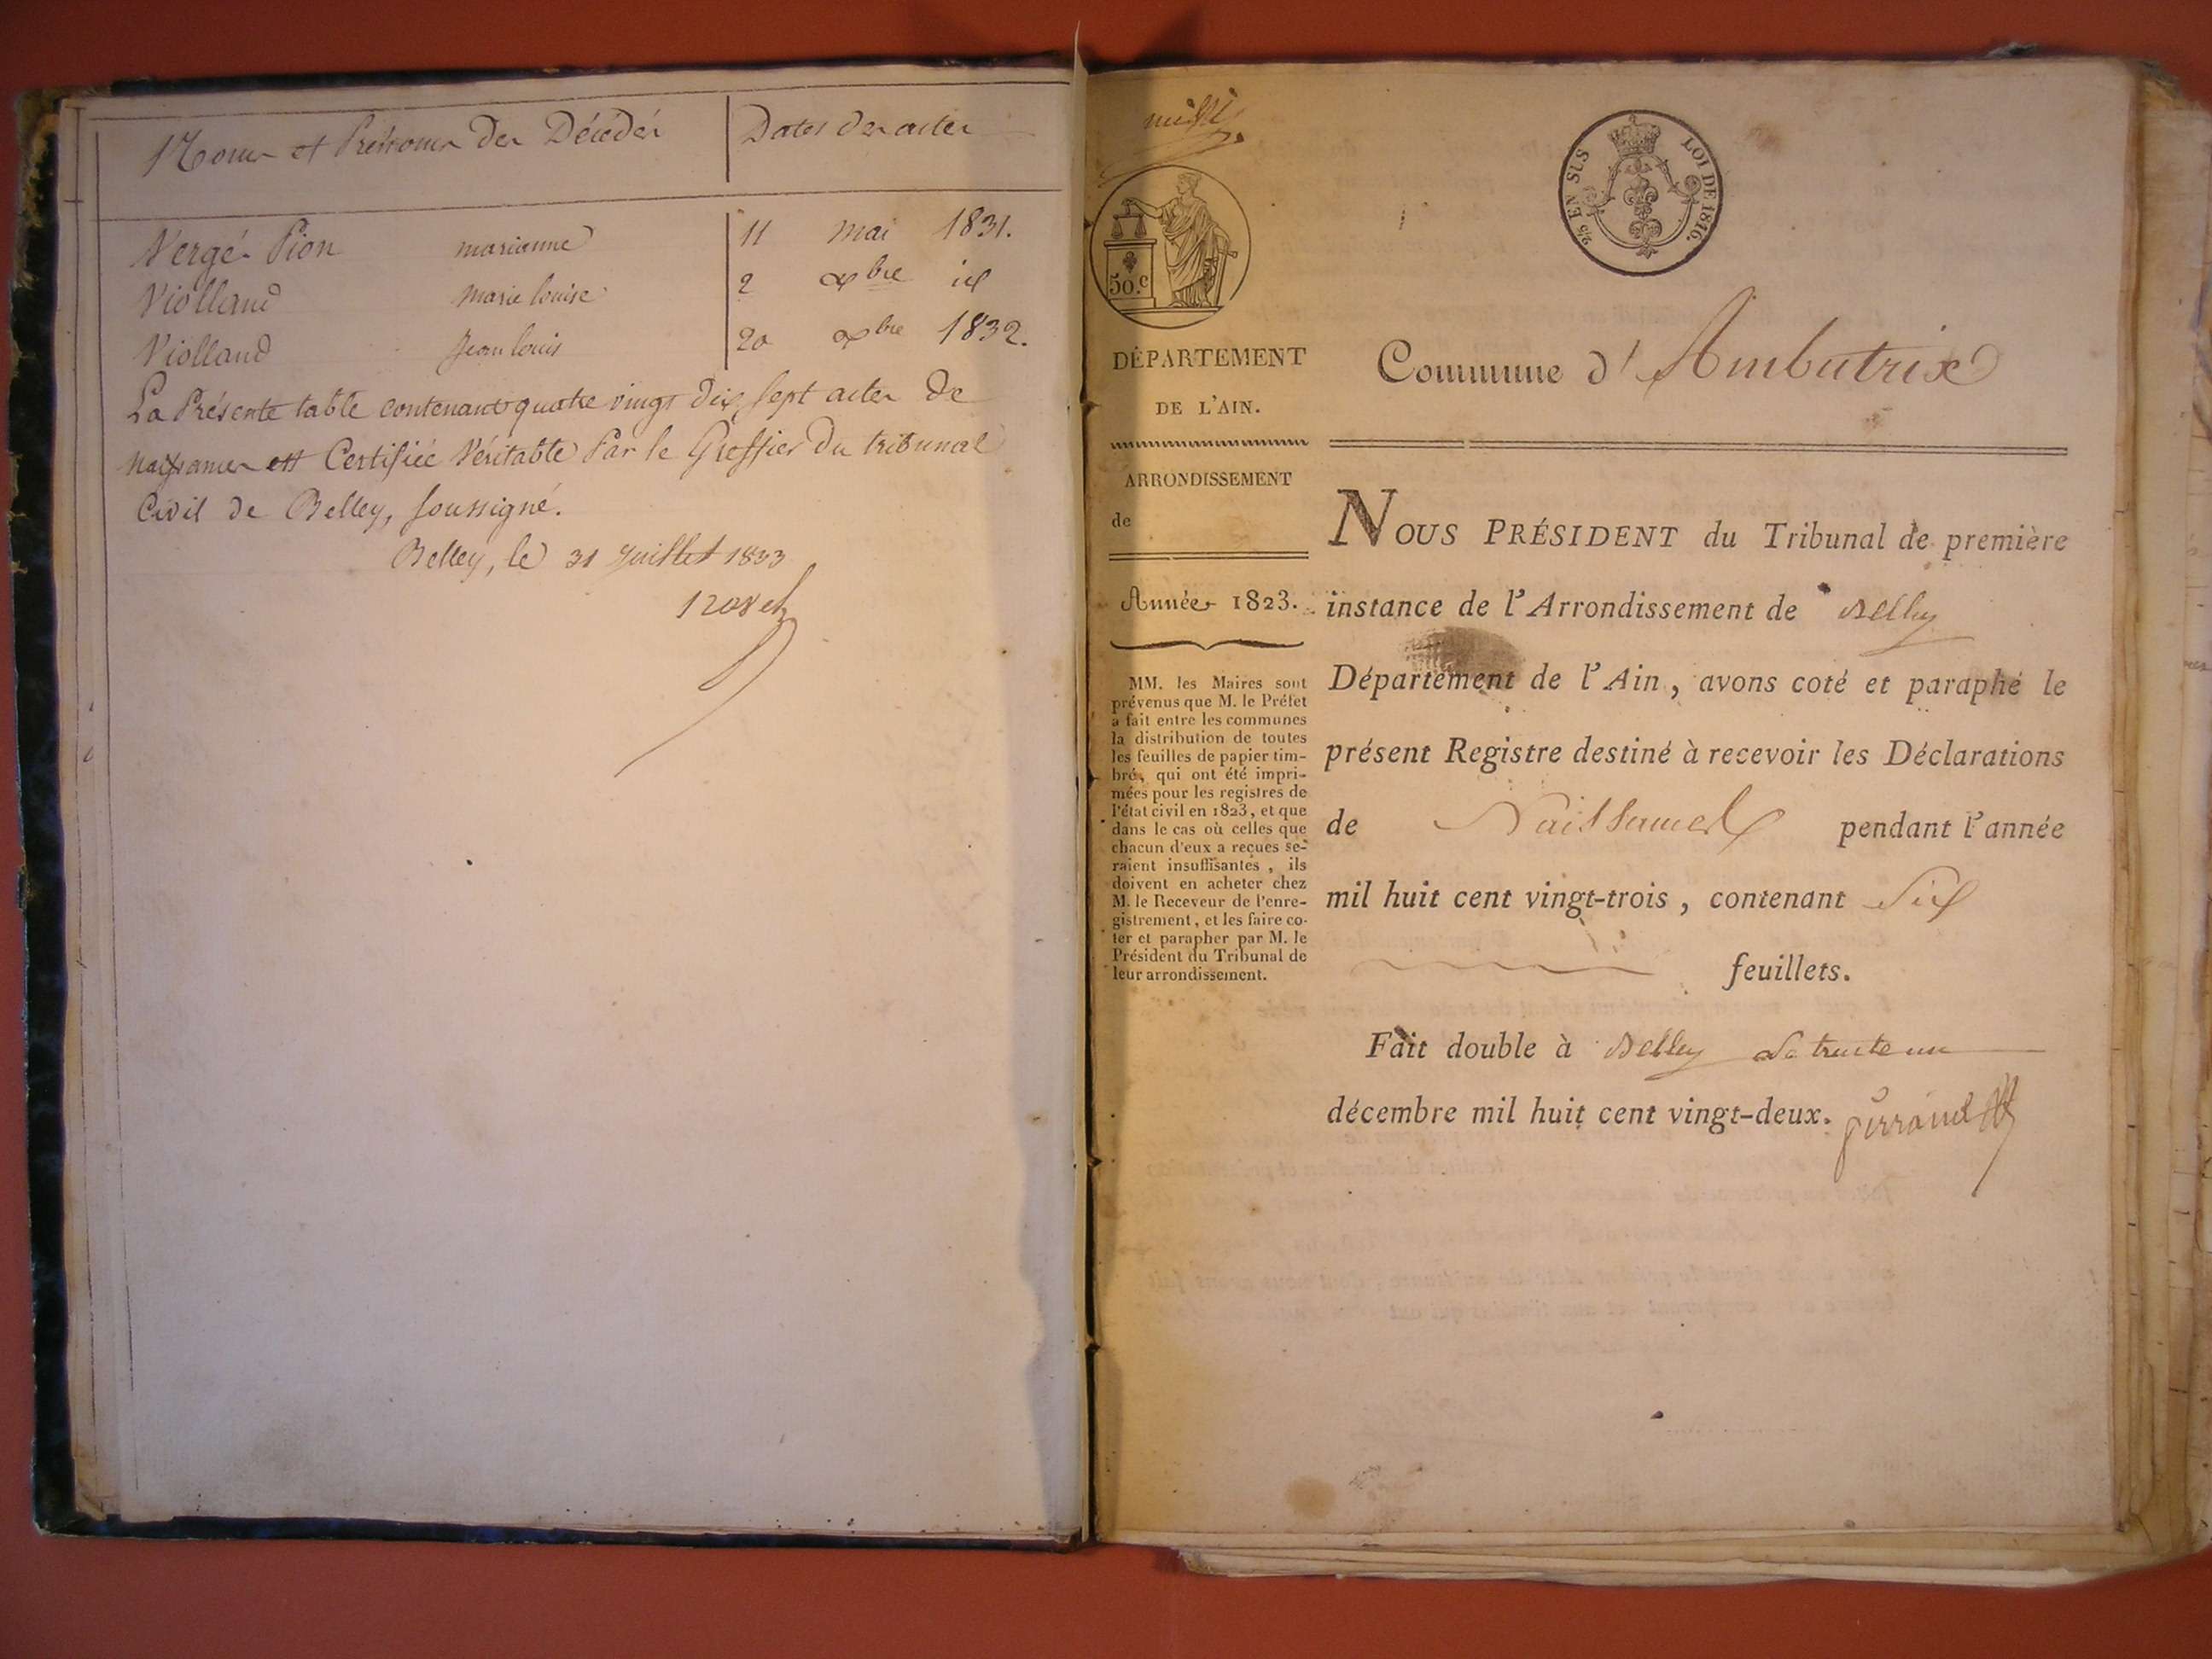 Noms et Prénoms des Décédés Dates des actes
Vergé-Pion marianne 11 mai 1831.
Violland marie louise 2 xbre id
Violland jean louis 20 xbre 1832.
La Présente table contenant quatre vingt dix sept actes de
naissances est Certifiée Véritable Par le Greffier Du tribunal
Civil de Belley, soussigné.
Belley, le 31 juillet 1833
50.c
2/5 EN SUS LOI DE 1816.
DÉPARTEMENT
DE L'AIN.
ARRONDISSEMENT
de
Année 1823.
MM. les Maires sont
prévenus que M. le Préfet
a fait entre les communes
la distribution de toutes
les feuilles de papier tim-
bré, qui ont été impri-
mées pour les registres de
l'état civil en 1823, et que
dans le cas où celles que
chacun d'eux a reçues se-
raient insuffisantes, ils
doivent en acheter chez
M. le Receveur de l'enre-
gistrement, et les faire co-
ter et parapher par M. le
Président du Tribunal de
leur arrondissement.
Commune d'Ambutrix
NOUS PRÉSIDENT du Tribunal de première
instance de l'Arrondissement de Belley
Département de l'Ain, avons coté et paraphé le
présent Registre destiné à recevoir les Déclarations
de Naissances pendant l'année
mil huit cent vingt-trois, contenant Six
feuillets.
Fait double à Belley le trente un
décembre mil huit cent vingt-deux.